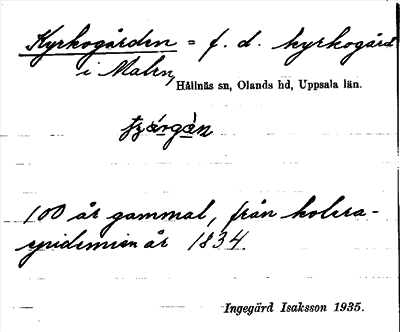 Kyrkogården = f. d. kyrkogård
i Malen,
Hållnäs sn, Olands hd, Uppsala län.
100 år gammal, från kolera-
epidemien år 1834.
Ingegärd Isaksson 1935.